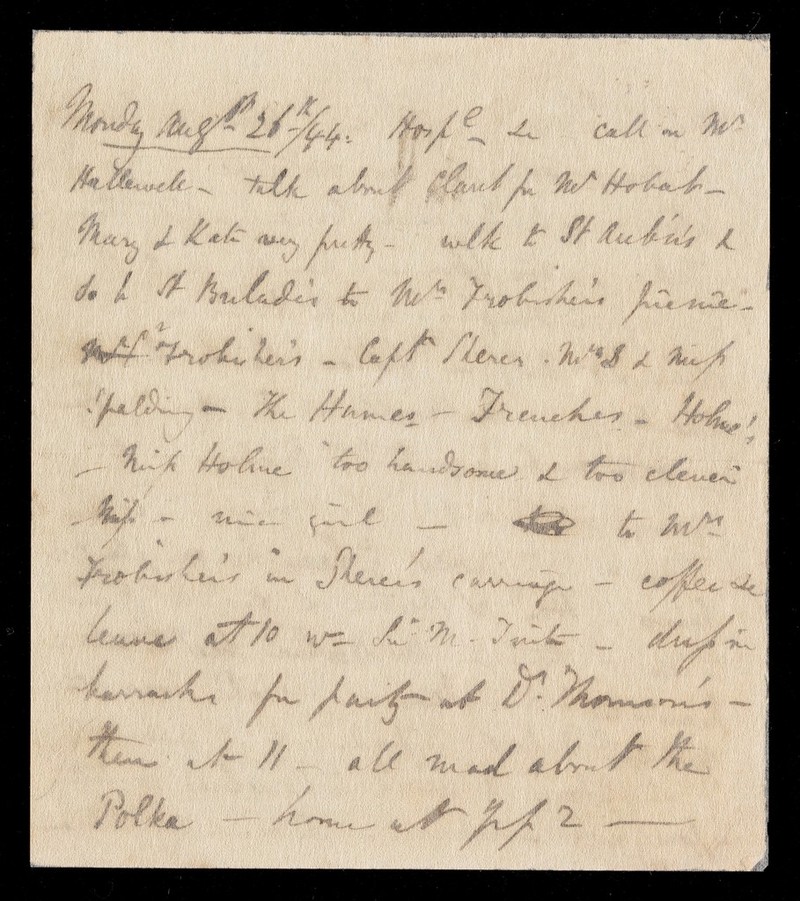 Monday Augst 26th/44. Hospl &c call on Mr
talk about Claret for Mr
Mary & Kate very pretty - walk to St Aubin's &
so to St to Mrs Frobisher's
Frobisher's - Captn Sherer. Mrs S & Miss
Spalding - The Humes - Frenches - Holme's
- Miss Holme "too handsome & too clever"
Miss - nice girl - to Mrs
Frobisher's in Sherer's carriage - coffee &c
leave at 10 wh Sir M. - dress in
barracks for party at Dr. Thomson's -
there at 11 - all mad about the
Polka - home at 2 -